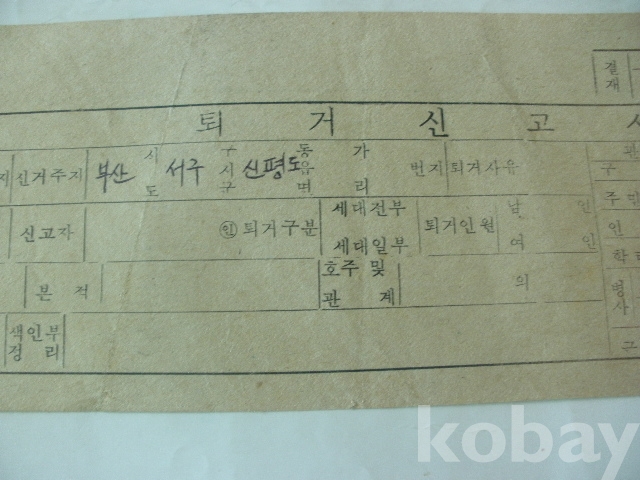 결재
퇴거신고서
신거주지 부산 시 도 서구 구 시 구 신평도 동 읍 면 가 리 번지 퇴거사유
신고자 ㊞ 퇴거구분 세대전부 세대일부 퇴거인원 남 인 여 인
본적 호주 및 관계 의
색인부정리
구
주
인
학
병사
그
kobay